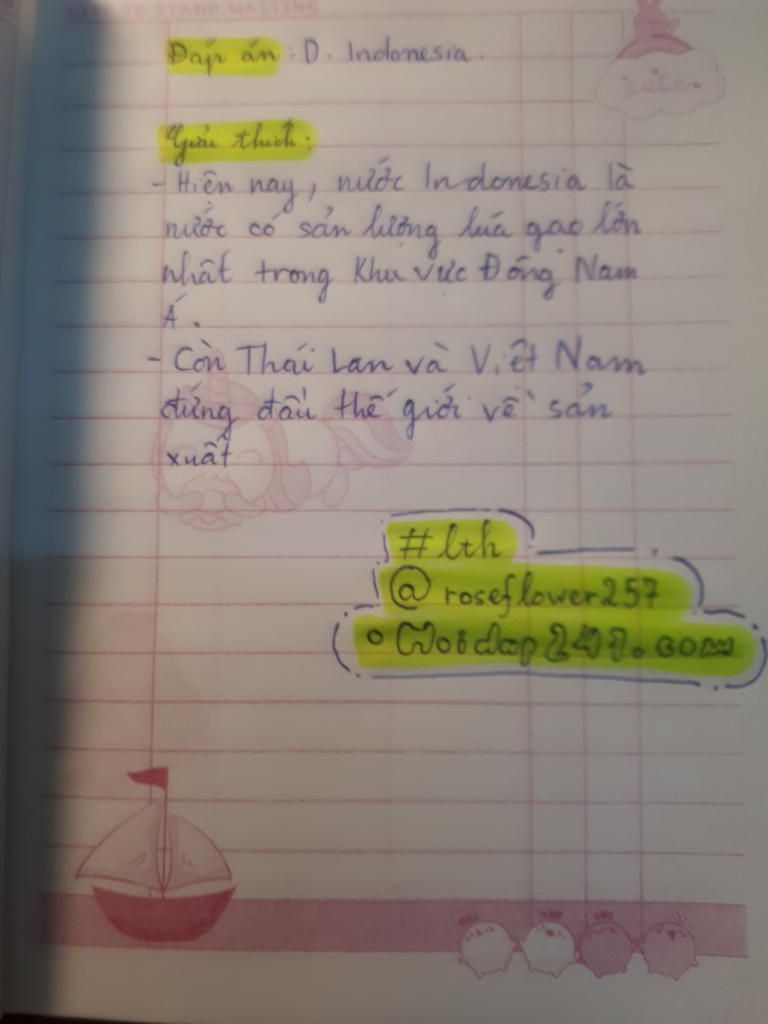 TO STAND WAITING
cute
Đáp án : D. Indonesia.
Giải thích :
- Hiện nay, nước Indonesia là
nước có sản lượng lúa gạo lớn
nhất trong khu vực Đông Nam
Á.
- Còn Thái Lan và Việt Nam
đứng đầu thế giới về sản
xuất
#lth
@roseflower257
Hoidap247.com